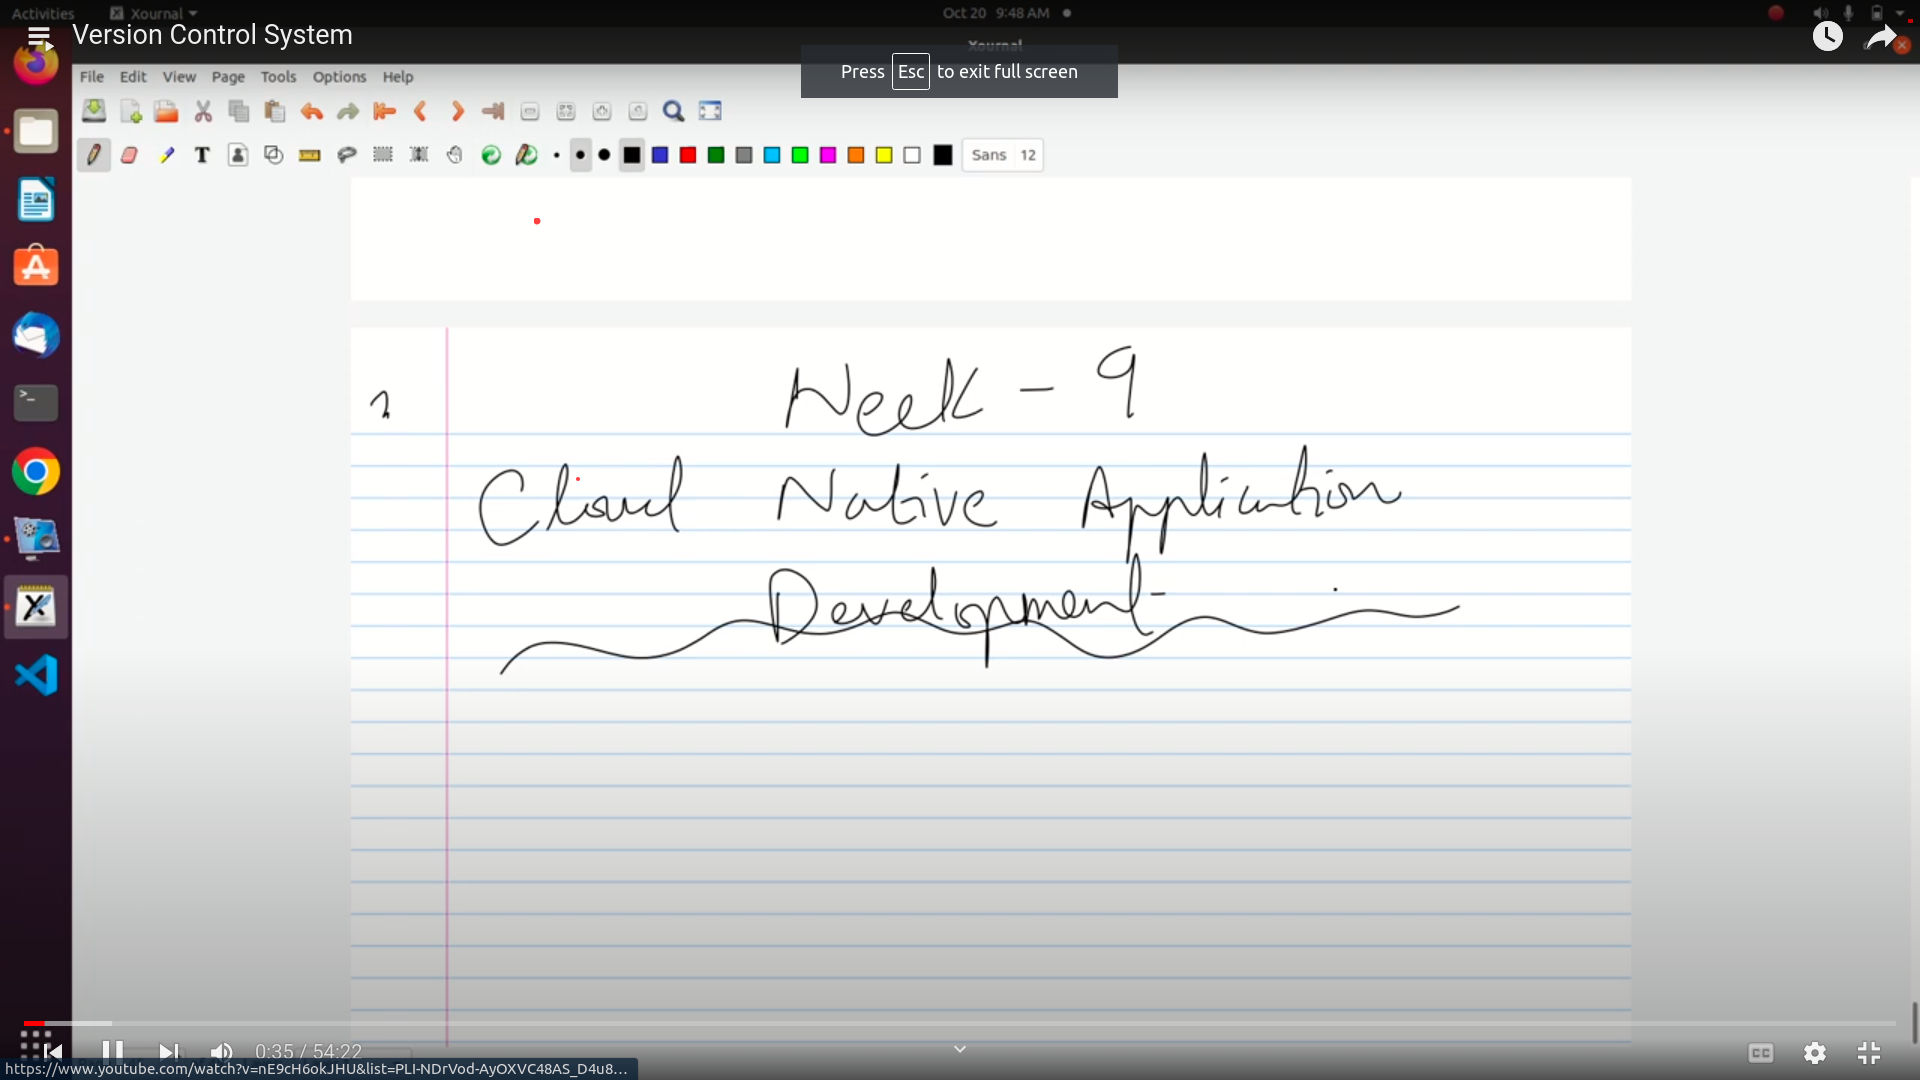 Activities Xournal Oct 20 9:48 AM
Version Control System
Xournal
Press Esc to exit full screen
File Edit View Page Tools Options Help
T Sans 12
Week - 9
Cloud Native Application
Development
0:35 / 54:22
CC
https://www.youtube.com/watch?v=nE9cH6okJHU&list=PLI-NDrVod-AyOXVC48AS_D4u8...